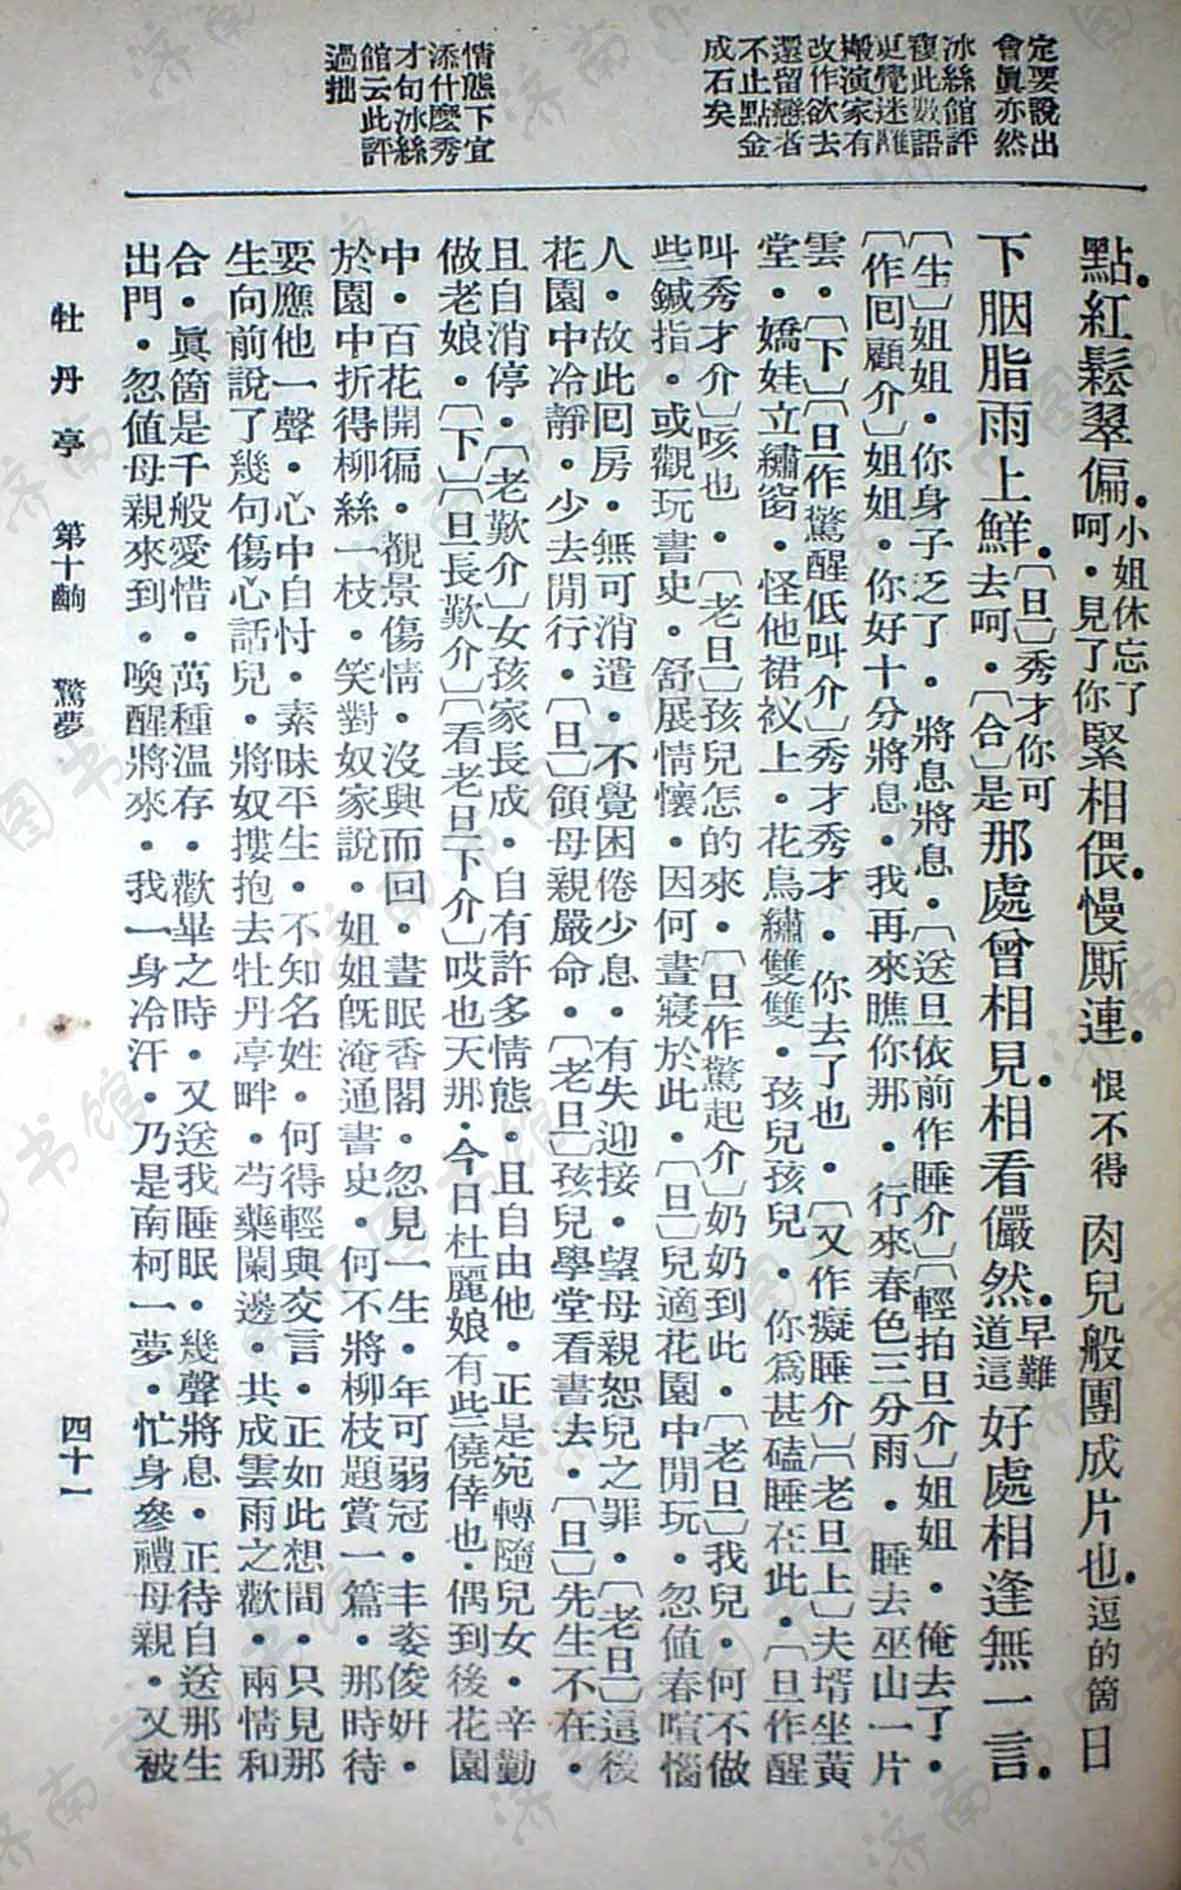 定要說出
會眞亦然
冰絲館評
復此數語
更覺迷離
搬演家有
改作欲去
還留戀者
不止點金
成石矣
情態下宜
添什麼秀
才句冰絲
館云此評
過拙
點．紅鬆翠偏．小姐休忘了呵．見了你緊相偎．慢厮連．恨不得肉兒般團成片也．逗的箇日
下胭脂雨上鮮．〔旦〕秀才你可去呵．〔合〕是那處曾相見．相看儼然．早難道這好處相逢無一言．
〔生〕姐姐．你身子乏了．將息將息．〔送旦依前作睡介〕〔輕拍旦介〕姐姐．俺去了．
〔作回顧介〕姐姐．你好十分將息．我再來瞧你那．行來春色三分雨．睡去巫山一片
雲．〔下〕〔旦作驚醒低叫介〕秀才秀才．你去了也．〔又作癡睡介〕〔老旦上〕夫壻坐黃
堂．嬌娃立繡窗．怪他裙衩上．花鳥繡雙雙．孩兒孩兒．你爲甚磕睡在此．〔旦作醒
叫秀才介〕咳也．〔老旦〕孩兒怎的來．〔旦作驚起介〕奶奶到此．〔老旦〕我兒．何不做
些鍼指．或觀玩書史．舒展情懷．因何晝寢於此．〔旦〕兒適花園中閒玩．忽値春喧惱
人．故此回房．無可消遣．不覺困倦少息．有失迎接．望母親恕兒之罪．〔老旦〕這後
花園中冷靜．少去閒行．〔旦〕領母親嚴命．〔老旦〕孩兒學堂看書去．〔旦〕先生不在．
且自消停．〔老歎介〕女孩家長成．自有許多情態．且自由他．正是宛轉隨兒女．辛勤
做老娘．〔下〕〔旦長歎介〕〔看老旦下介〕哎也天那．今日杜麗娘有些僥倖也．偶到後花園
中．百花開徧．覩景傷情．沒興而回．晝眠香閣．忽見一生．年可弱冠．丰姿俊姸．
於園中折得柳絲一枝．笑對奴家說．姐姐旣淹通書史．何不將柳枝題賞一篇．那時待
要應他一聲．心中自忖．素昧平生．不知名姓．何得輕與交言．正如此想間．只見那
生向前說了幾句傷心話兒．將奴摟抱去牡丹亭畔．芍藥闌邊．共成雲雨之歡．兩情和
合．眞箇是千般愛惜．萬種溫存．歡畢之時．又送我睡眠．幾聲將息．正待自送那生
出門．忽値母親來到．喚醒將來．我一身冷汗．乃是南柯一夢．忙身參禮母親．又被
牡丹亭　第十齣　驚夢　四十一